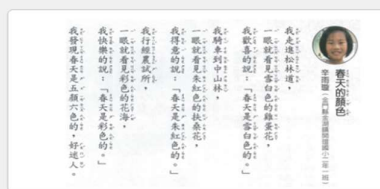 春天的顏色
辛雨璇（金門縣金湖鎮開瑄國小二年一班）
我走進松林道，
一眼就看見雪白色的雞蛋花，
我歡喜的說：「春天是雪白色的。」
我騎車到中山林，
一眼就看見朱紅色的扶桑花，
我得意的說：「春天是朱紅色的。」
我行經農試所，
一眼就看見彩色的花海，
我快樂的說：「春天是彩色的。」
我發現春天是五顏六色的，好迷人。